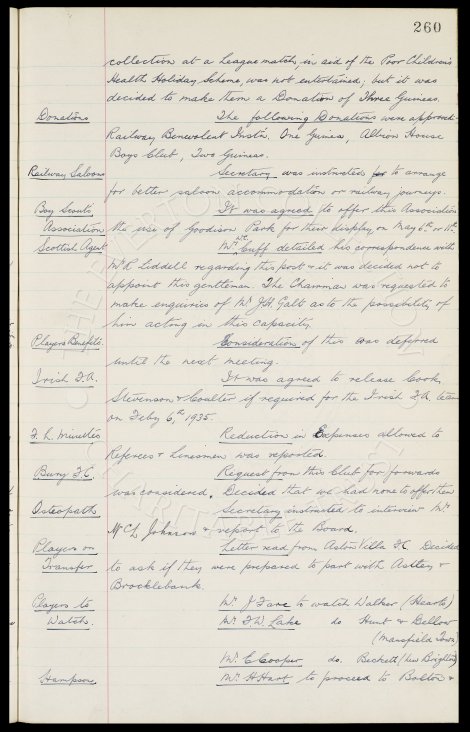 260
collection at a League match, in aid of the Poor Children's
Health Holiday Scheme, was not entertained, but it was
decided to make them a Donation of Three Guineas.
Donations The following Donations were approved:
Railway Benevolent Instn. One Guinea, Albion House
Boys Club, Two Guineas.
Railway Saloons Secretary was instructed to arrange
for better saloon accommodation on railway journeys.
Boy Scouts It was agreed to offer this Association
Association the use of Goodison Park for their display, on May 6th or 11th.
Scottish Agent Mr. Cuff detailed his correspondence with
Mr R. Liddell regarding this post & it was decided not to
appoint this gentleman. The Chairman was requested to
make enquiries of Mr J.H. Galt as to the possibility of
him acting in this capacity.
Players Benefits. Consideration of this was deferred
until the next meeting.
Irish F.A. It was agreed to release Cook,
Stevenson & Coulter if required for the Irish F.A. team
on Feby 6th 1935.
F.L. Minutes Reduction in Expenses allowed to
Referees & Linesmen was reported.
Bury F.C. Request from this Club for forwards
was considered. Decided that we had none to offer them
Osteopath Secretary instructed to interview Mr
Johnson & report to the Board.
Players on Letter read from Aston Villa F.C. Decided
Transfer to ask if they were prepared to part with Astley &
Brocklebank.
Players to Mr. J Fare to watch Walker (Hearts)
Watch. Mr. F.W. Lake do Hunt & Bellow
(Mansfield Town)
Mr. E Cooper do. Beckett (New Brighton)
Mr. H Hart to proceed to Bolton &